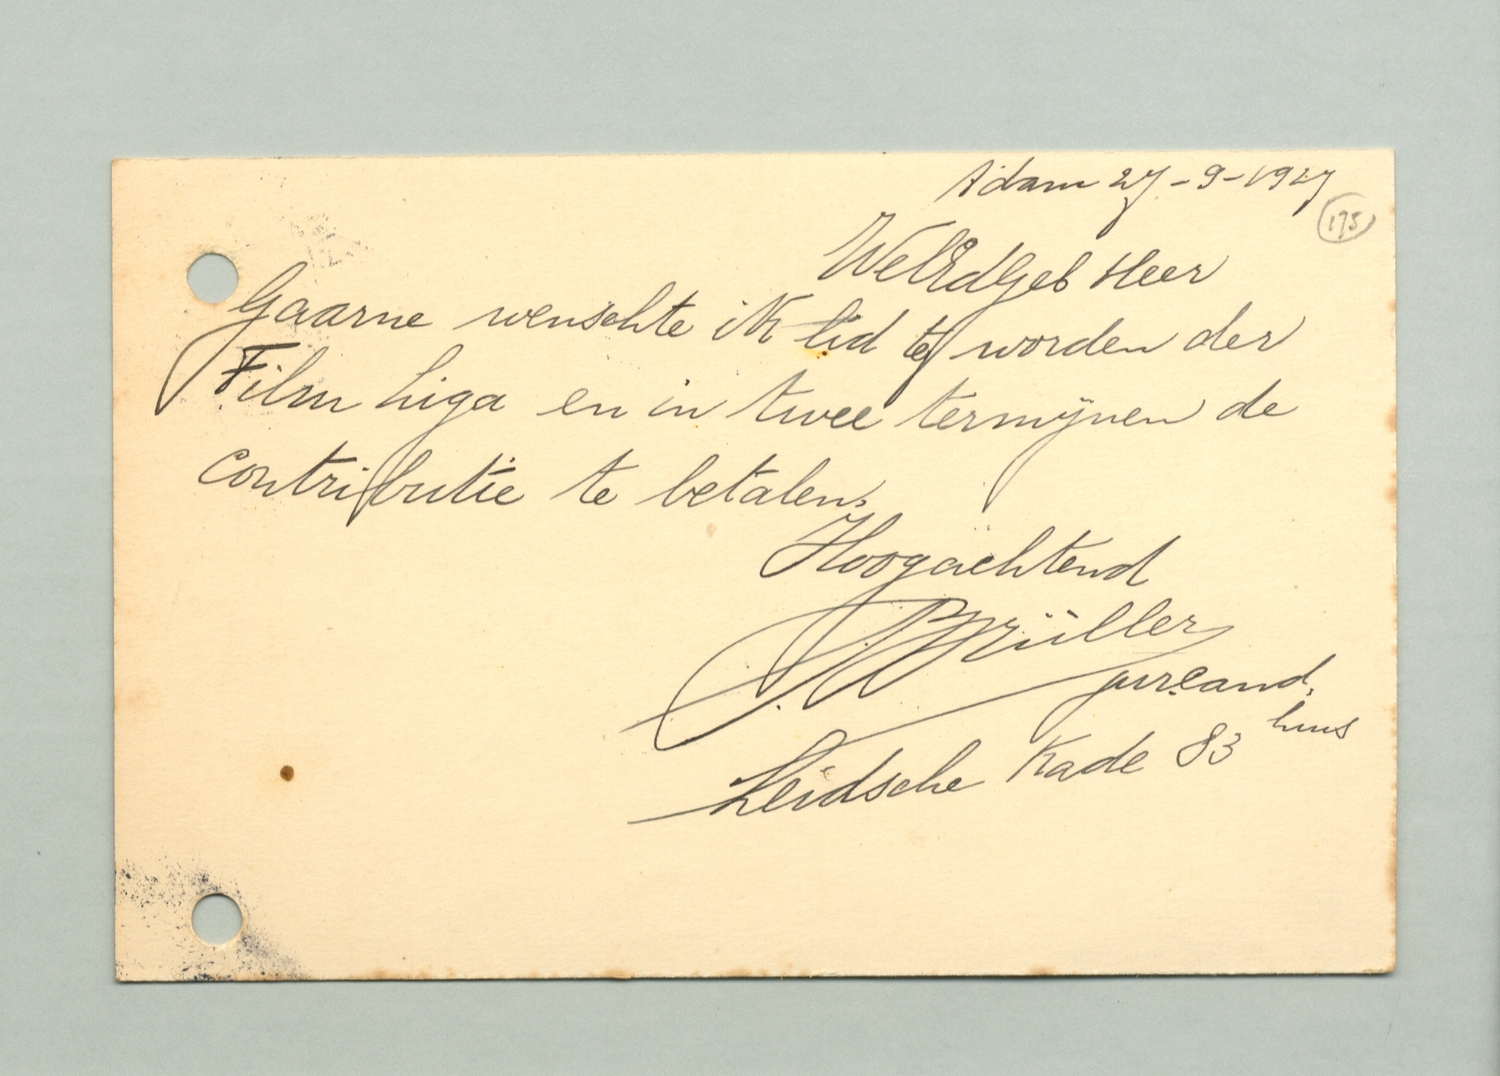 Adam 27-9-1927
175
WelEdGeb Heer
Gaarne wenschte ik lid te worden der
Film Liga en in twee termijnen de
contributie te betalen,
Hoogachtend
Brüller
jur. cand.
Leidsche Kade 83 huis